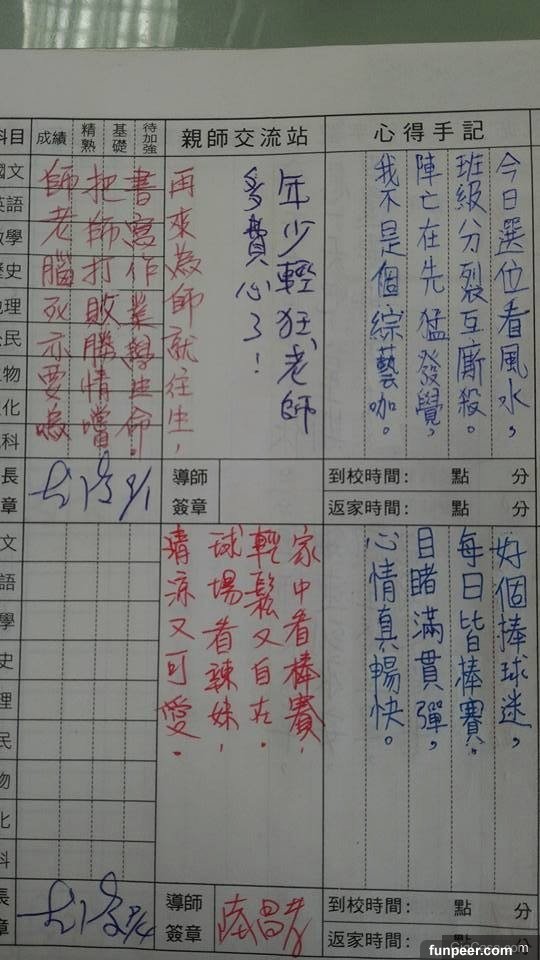 科目
成績
精熟
基礎
待加強
親師交流站
心得手記
今日選位看風水,
班級分裂互廝殺。
陣亡在先猛發覺,
我不是個綜藝咖。
年少輕狂,老師
多費心了!
再來為師就往生,
書寫作業學生命。
把師打敗勝情噹
師老腦死亦要嗚
國文
英語
數學
歷史
地理
公民
物
化
科
長
章
9/1
導師
簽章
到校時間: 點 分
返家時間: 點 分
好個棒球迷,
每日皆棒賽。
目睹滿貫彈,
心情真暢快。
家中看棒賽,
輕鬆又自在.
球場看辣妹,
清涼又可愛.
文
語
學
史
理
民
物
化
科
長
章
9/4
導師
簽章
到校時間: 點 分
返家時間: 點 分
funpeer.com